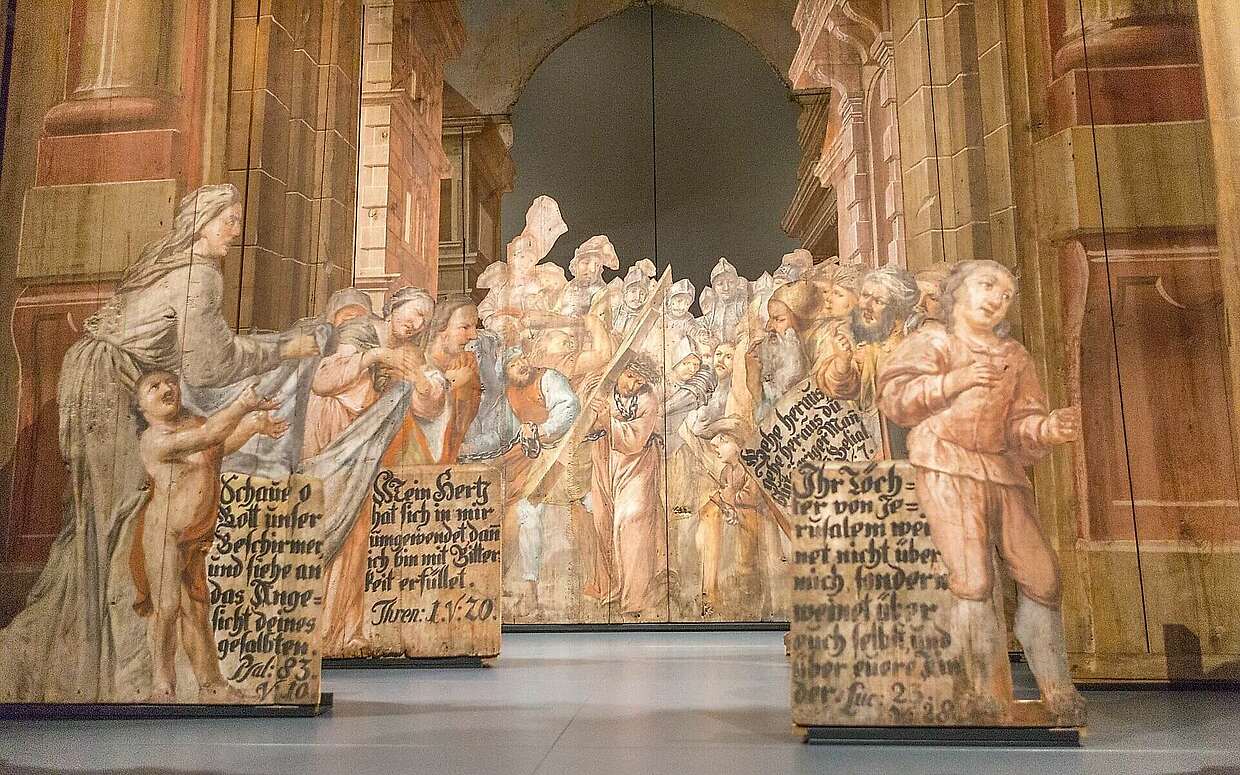 Schaue o
Gott unser
Beschirmer
und siehe an
das Ange-
sicht deines
gesalbten.
Psal: 83.
V. 10.
Mein Hertz
hat sich in mir
umgewendet dañ
ich bin mit Bitter
keit erfüllet.
Thren: 1. V: 20.
Gehe heraus
gehe heraus du
Mañ
Ihr Töch-
ter von Je-
rusalem wei
net nicht über
mich sondern
weinet über
euch selbst und
über euere Kin
der. Luc: 23.
V. 28.